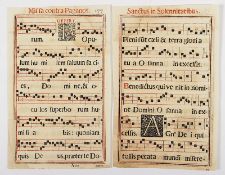 Missa contra Paganos.
rum. Opu-
lum hu mi lem saluum fa ci-
es, Domi ne, & o-
cu los superbo rum hu
mi li a bis: quoniam
quis De us præter te Do-
Sanctus in Solemnitatibus.
Pleni sunt cæli & terra gloria
tu a O sanna in excelsis.
Benedictus qui ve nit in no-
mine Domini O sanna in ex-
celsis. A Gn' De i qui
tollis peccata mundi misere-